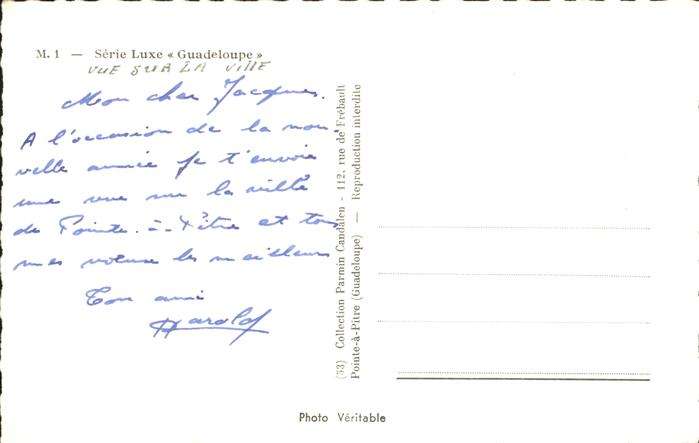 M. 1 — Série Luxe « Guadeloupe »
VUE SUR LA VILLE
Mon cher Jacques.
A l'occasion de la nou-
velle année je t'envoie
une vue sur la ville
de Pointe-à-Pitre et tous
mes voeux les meilleurs
Ton ami
Harold
(33) Collection Parmin Candalen - 112, rue de Frébault
Pointe-à-Pitre (Guadeloupe) — Reproduction interdite
Photo Véritable